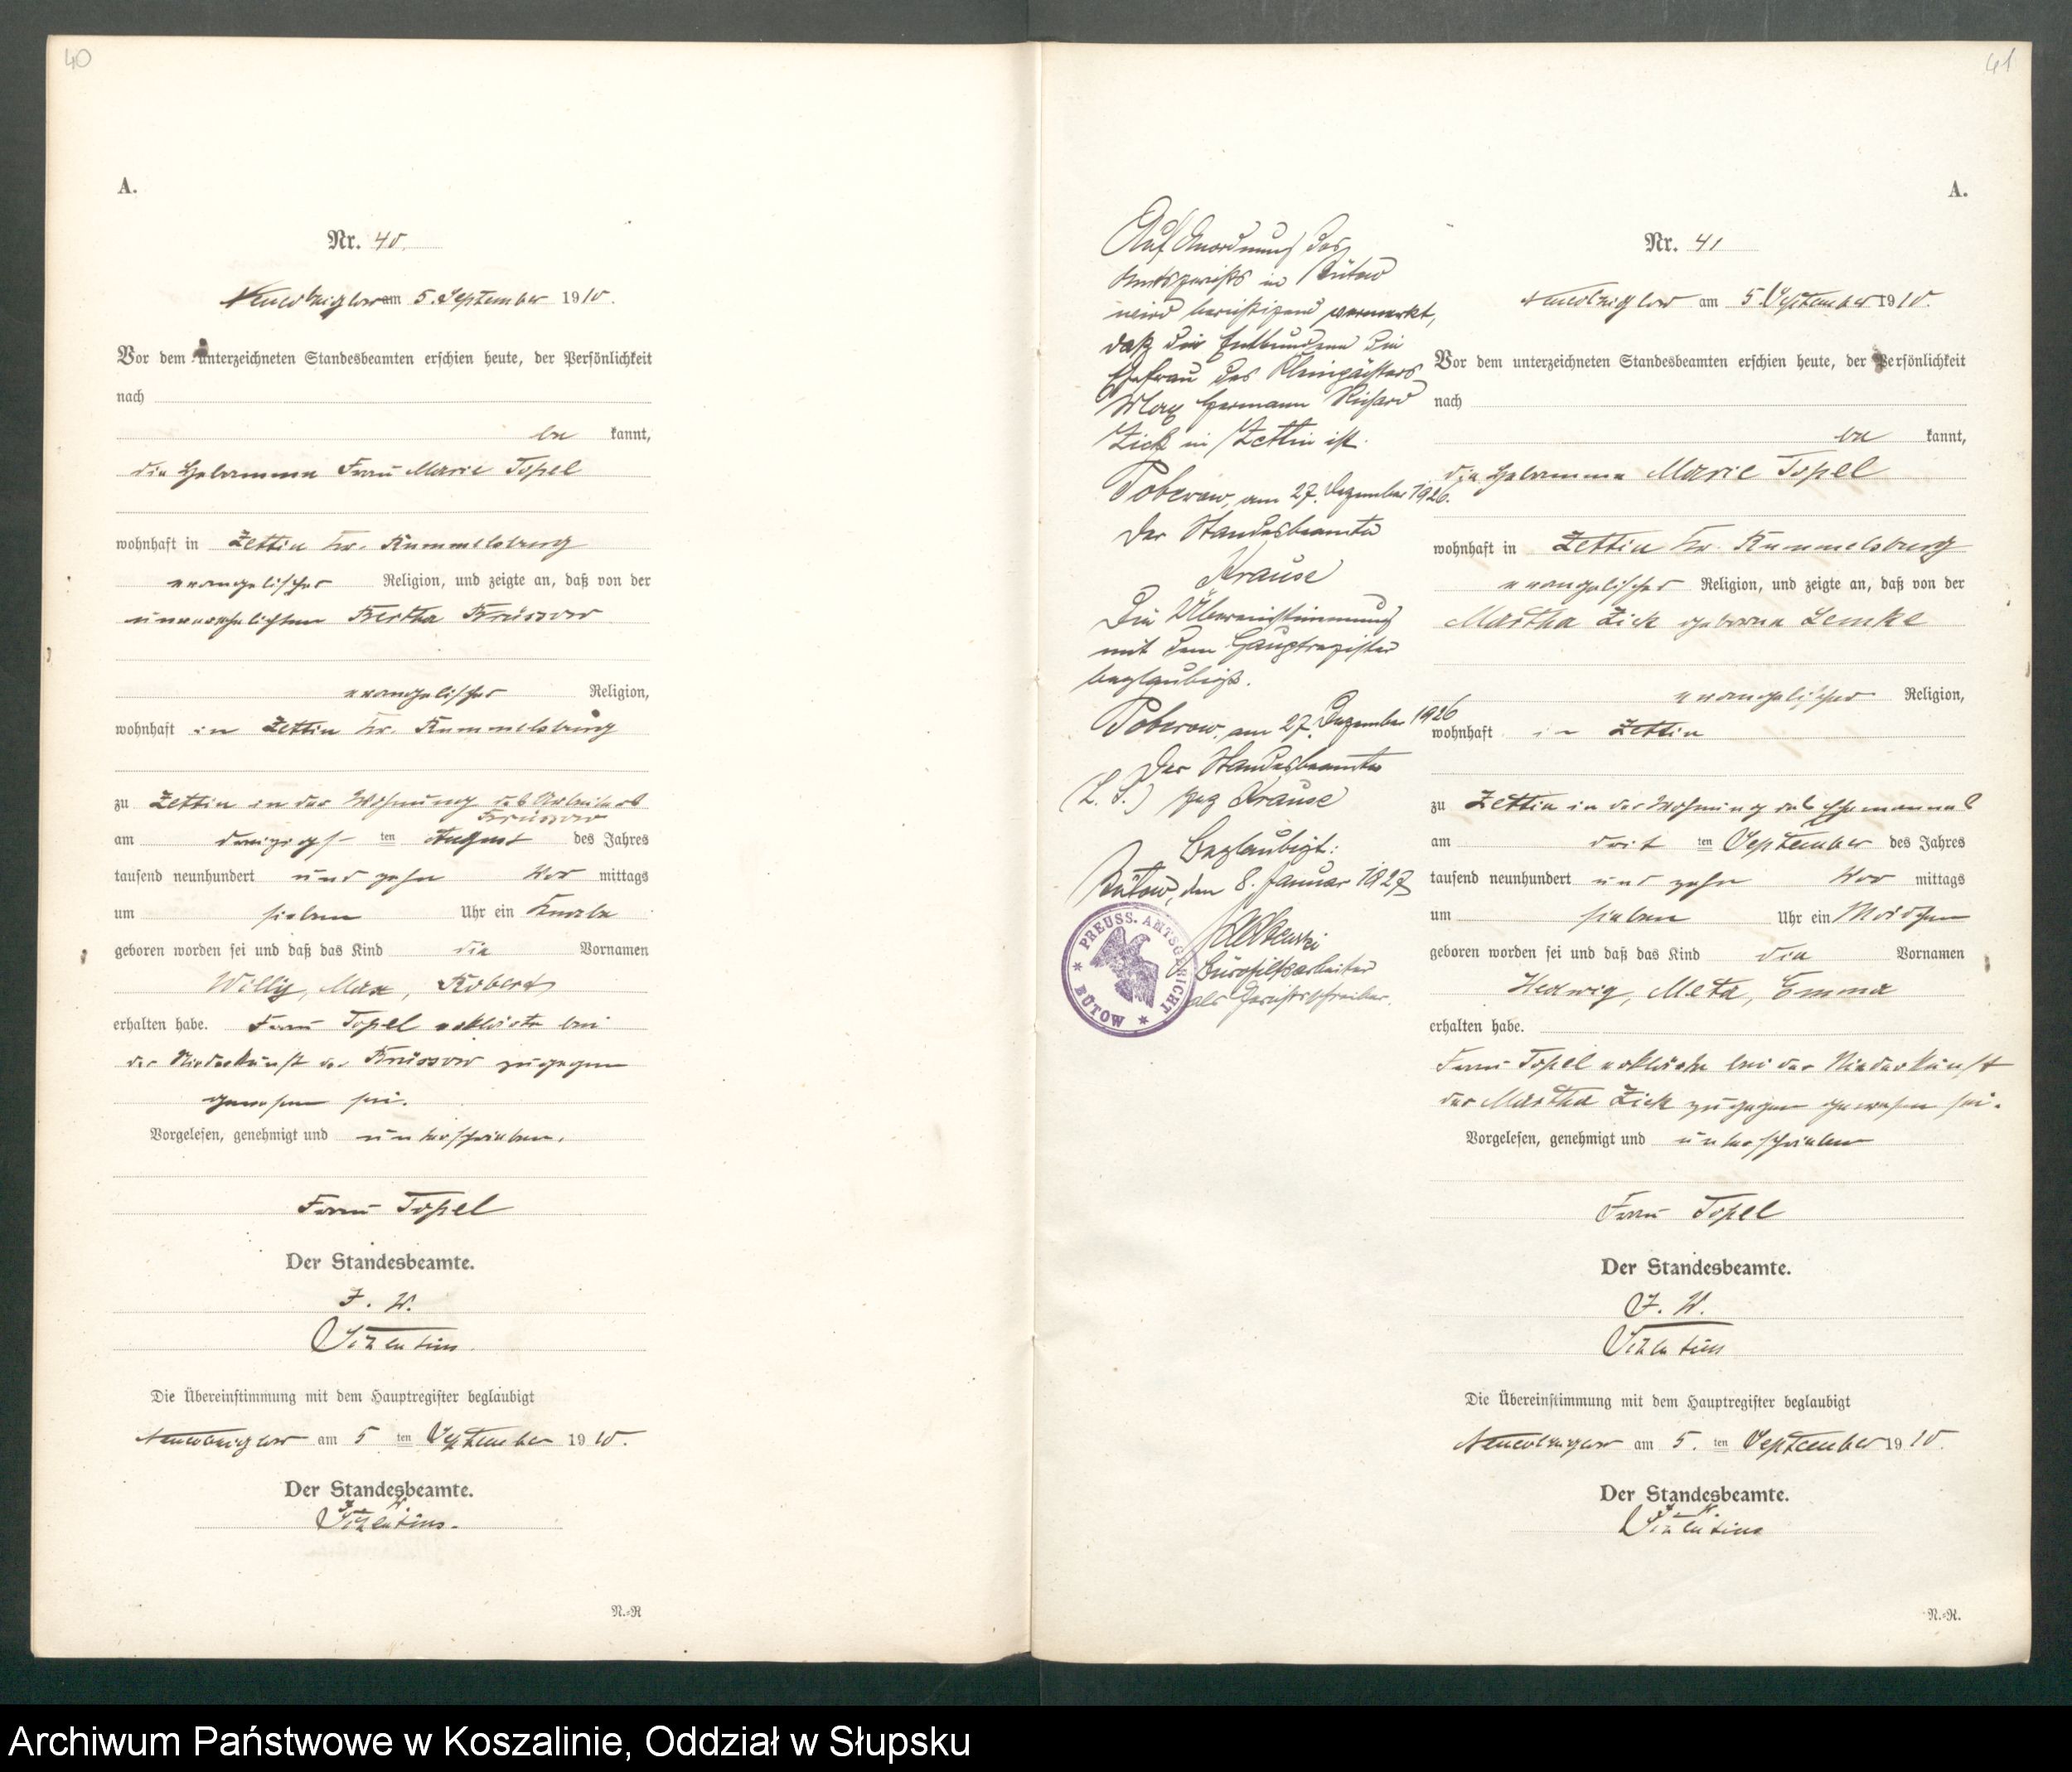 40
A.
Nr. 40.
am 5. September 1910.
Vor dem unterzeichneten Standesbeamten erschien heute, der Persönlichkeit
nach
be kannt,
die Hebamme Frau Marie Topel
wohnhaft in Zettin Kr. Rummelsburg
evangelischer Religion, und zeigte an, daß von der
unverehelichten Bertha Krüssow
evangelischer Religion,
wohnhaft in Zettin Kr. Rummelsburg
zu Zettin in der Wohnung des Arbeiters
Krüssow
am dreizigst ten August des Jahres
tausend neunhundert und zehn Vor mittags
um sieben Uhr ein Knabe
geboren worden sei und daß das Kind die Vornamen
Willy, Max, Robert
erhalten habe. Frau Topel erklärte bei
der Niederkunft der Krüssow zugegen
gewesen sei.
Vorgelesen, genehmigt und unterschrieben.
Frau Topel
Der Standesbeamte.
J. V.
Die Übereinstimmung mit dem Hauptregister beglaubigt
am 5 ten September 1910.
Der Standesbeamte.
J. V.
N.=R
41
A.
Auf Anordnung des
Amtsgerichts in Bütow
wird berichtigend vermerkt,
daß die Entbundene die
Ehefrau des Kleinpächters
Max Hermann Richard
Zick in Zettin ist.
Poberow, am 27. Dezember 1926.
Der Standesbeamte
Krause
Die Übereinstimmung
mit dem Hauptregister
beglaubigt.
Poberow, am 27. Dezember 1926
Der Standesbeamte
(L. S.) gez Krause
Beglaubigt:
Bütow, den 8. Januar 1927
Bürohilfsarbeiter
als Gerichtsschreiber.
PREUSS. AMTSGERICHT
* BÜTOW *
Nr. 41
am 5. September 1910.
Vor dem unterzeichneten Standesbeamten erschien heute, der Persönlichkeit
nach
be kannt,
die Hebamme Marie Topel
wohnhaft in Zettin Kr. Rummelsburg
evangelischer Religion, und zeigte an, daß von der
Martha Zick geborene Lemke
evangelischer Religion,
wohnhaft in Zettin
zu Zettin in der Wohnung des Ehemannes
am drit ten September des Jahres
tausend neunhundert und zehn Vor mittags
um sieben Uhr ein Mädchen
geboren worden sei und daß das Kind die Vornamen
Hedwig, Meta, Emma
erhalten habe.
Frau Topel erklärte bei der Niederkunft
der Martha Zick zugegen gewesen sei.
Vorgelesen, genehmigt und unterschrieben
Frau Topel
Der Standesbeamte.
J. V.
Die Übereinstimmung mit dem Hauptregister beglaubigt
am 5. ten September 1910.
Der Standesbeamte.
J. V.
N.=R.
Archiwum Państwowe w Koszalinie, Oddział w Słupsku